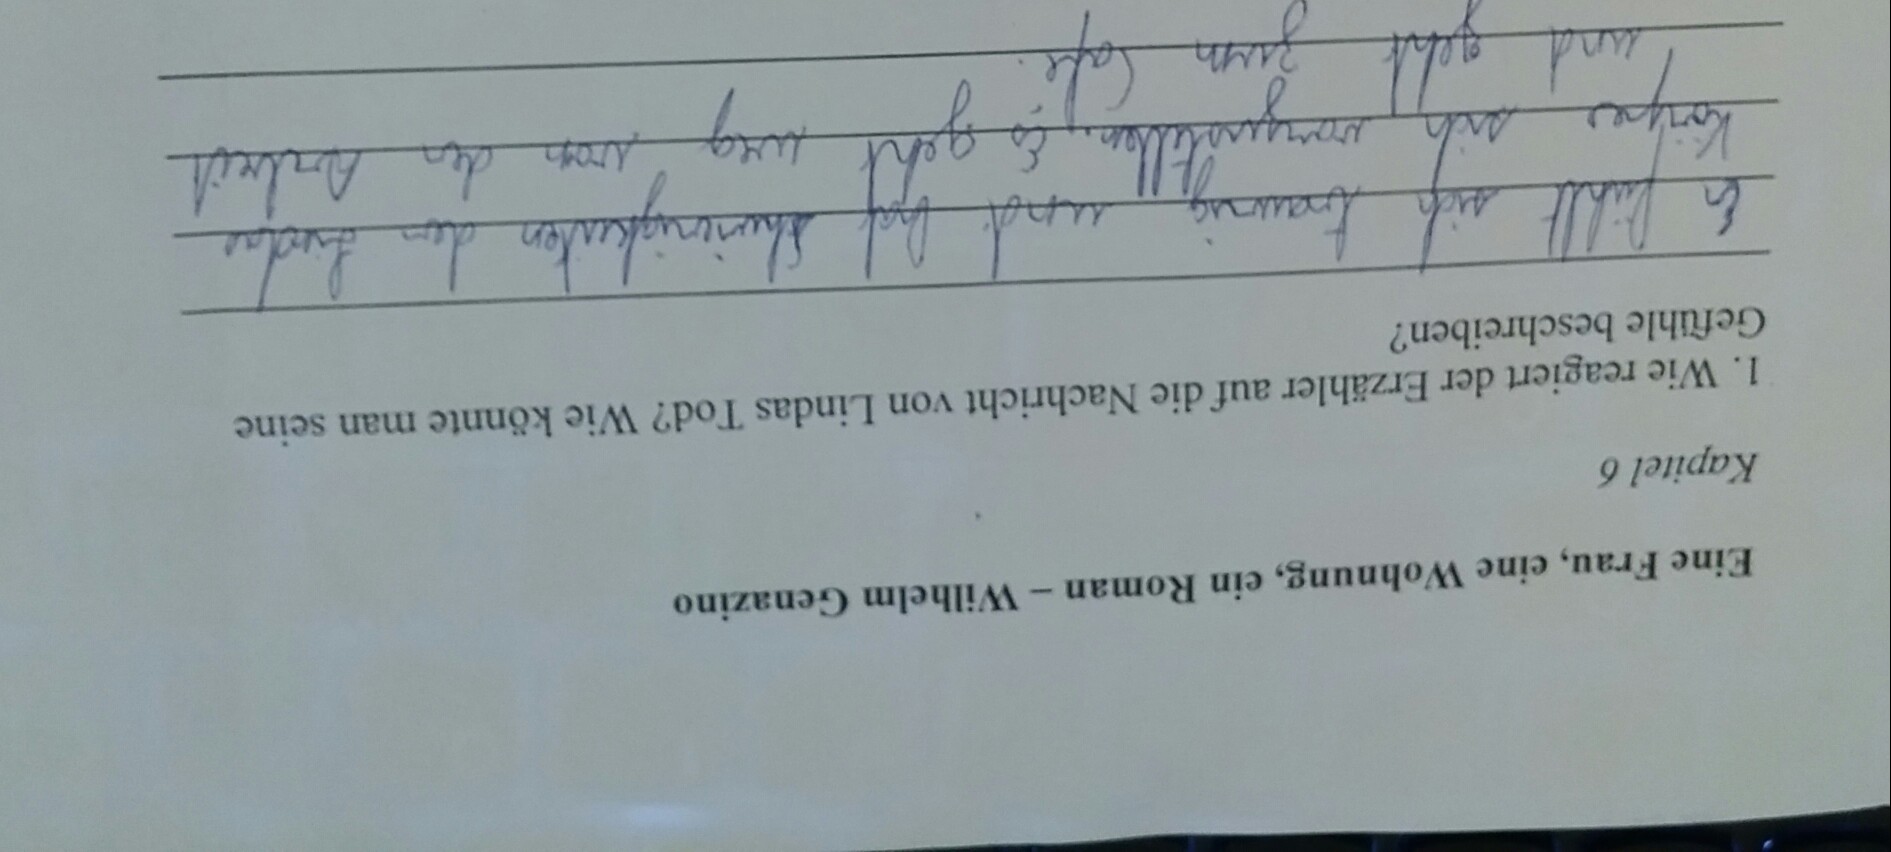 Eine Frau, eine Wohnung, ein Roman – Wilhelm Genazino
Kapitel 6
1. Wie reagiert der Erzähler auf die Nachricht von Lindas Tod? Wie könnte man seine
Gefühle beschreiben?
Er fühlt sich traurig und hat Schwierigkeiten den Lindas
Körper sich vorzustellen. Er geht weg von der Arbeit
und geht zum Café.